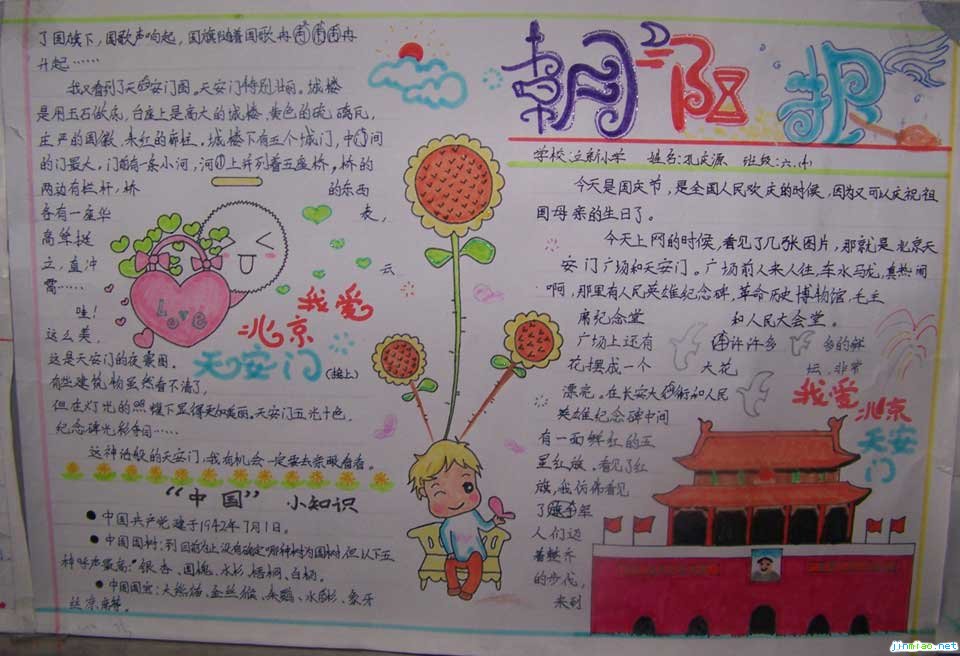 朝阳报
学校:立新小学 姓名:孔庆源 班级:六.(4)
今天是国庆节，是全国人民欢庆的时候，因为又可以庆祝祖
国母亲的生日了。
今天上网的时候，看见了几张图片，那就是北京天
安门广场和天安门。广场前人来人往，车水马龙，真热闹
啊，那里有人民英雄纪念碑，革命历史博物馆，毛主
席纪念堂 和人民大会堂。
广场上还有 许许多多的鲜
花摆成一个 大花坛，非常
漂亮。在长安大街和人民
英雄纪念碑中间
有一面鲜红的五
星红旗。看见了红
旗，我仿佛看见
了
人们迈
着整齐
的步伐，
来到
了国旗下，国歌声响起，国旗随着国歌冉冉
升起……
我又看到了天安门图。天安门特别壮丽。城楼
是用玉石做底，台座上是高大的城楼，黄色的琉璃瓦，
庄严的国徽，朱红的廊柱。城楼下有五个城门，中间
的门最大，门前有一条小河，河上并列着五座桥，桥的
两边有栏杆，桥 的东西
各有一座华 表，
高耸挺
立，直冲 云
霄……
哇！
这么美，
这是天安门的夜景图。
有些建筑物虽然看不清了，
但在灯光的照耀下显得更加美丽。天安门五光十色，
纪念碑光彩夺目……
这神话般的天安门，我有机会一定要去亲眼看看。
Love
我爱
北京
天安门
(接上)
“中国” 小知识
●中国共产党建于1942年7月1日。
●中国国树:到目前为止没有确定哪种树为国树，但以下五
种呼声最高:银杏、国槐、水杉、梧桐、白杨。
●中国国宝:大熊猫、金丝猴、朱鹮、水杉、象牙
我爱
北京
天安
门
jinmiao.net